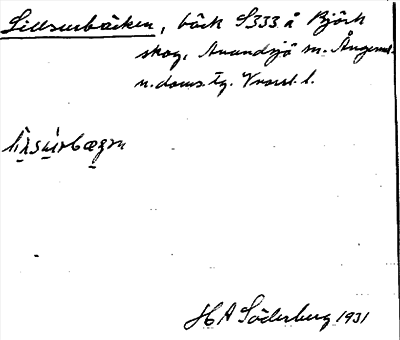 Lillsurbäcken, bäck S333 å Björk
skog, Anundsjö sn. Ångerml.
n. doms. tg. Vrnsl. l.
H A Söderberg 1931